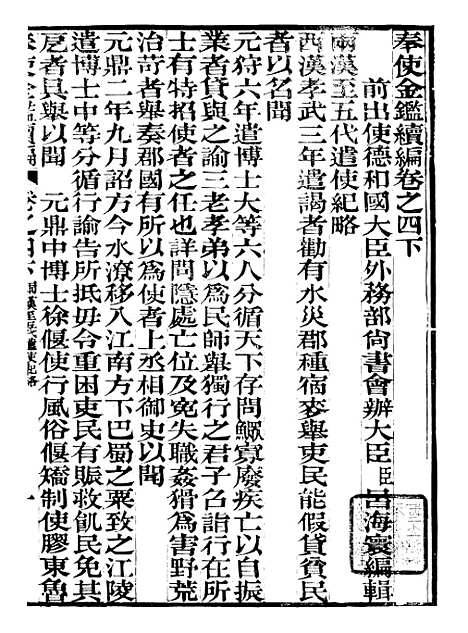 奉使金鑑續編卷之四下
前出使德和國大臣外務部尚書會辦大臣臣呂海寰編輯
兩漢至五代遣使紀略
西漢孝武三年遣謁者勸有水災郡種宿麥舉吏民能假貸貧民
者以名聞
元狩六年遣博士大等六人分循天下存問鰥寡廢疾亡以自振
業者貸與之諭三老孝弟以爲民師舉獨行之君子召詣行在所
士有特招使者之任也詳問隱處亡位及寃失職姦猾爲害野荒
治苛者舉奏郡國有所以爲使者上丞相御史以聞
元鼎二年九月詔方今水潦移入江南方下巴蜀之粟致之江陵
遣博士中等分循行諭告所抵毋令重困吏民有賑救飢民免其
戹者具舉以聞　元鼎中博士徐偃使行風俗偃矯制使膠東魯
奉使金鑑續編 卷之四下 兩漢至五代遣使紀略 一